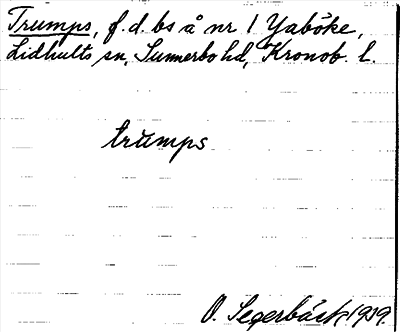 Trumps, f.d. bs å nr 1 Yaböke,
Lidhults sn, Sunnerbo hd, Kronob. l.
trumps
O. Segerbäck 1939.